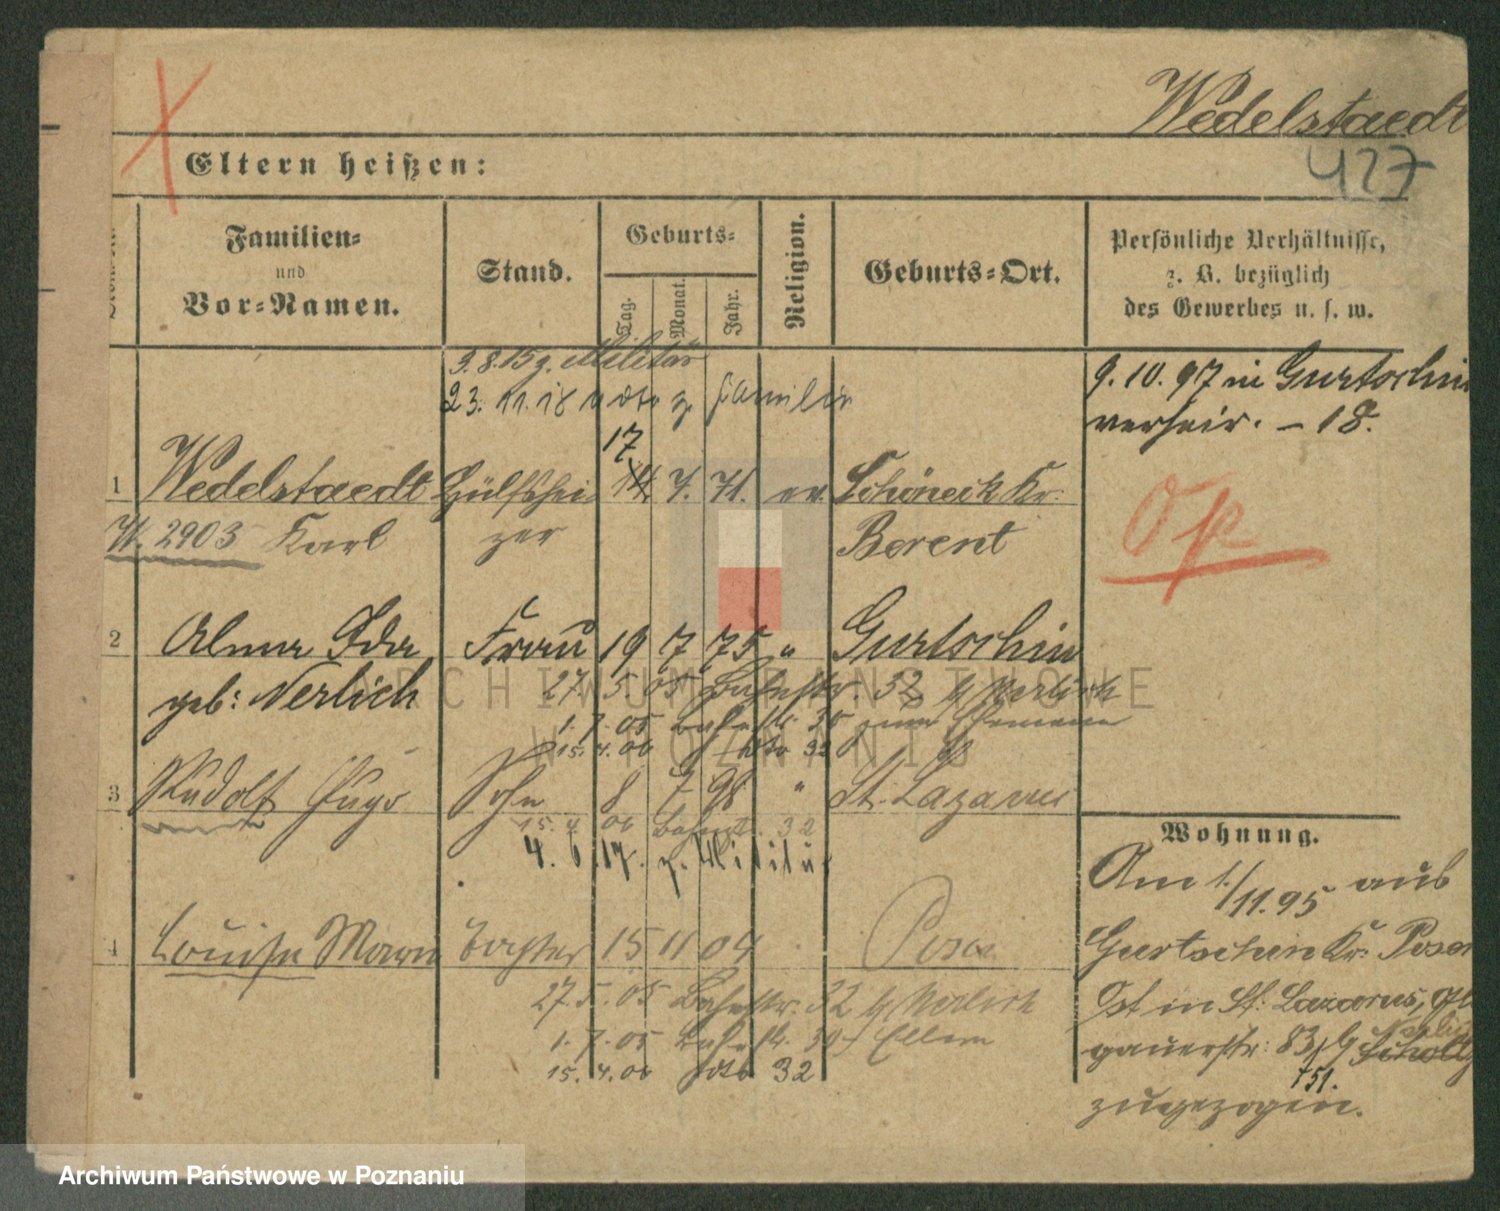 Wedelstaedt
427
Eltern heißen:
Familien=
und
Vor=Namen.
Stand.
Geburts=
Tag.
Monat.
Jahr.
Religion.
Geburts=Ort.
Persönliche Verhältnisse,
z. B. bezüglich
des Gewerbes u. s. w.
3.8.15 z. Militär
23. 11. 18 z. Familie
9. 10. 97 in Gurtschin
verheir. – 18.
17
1 Wedelstaedt Hülfshei 14 7. 71. ev. Schöneck Kr.
2903 Karl zer Berent
Op
2 Alma Ida Frau 19 7 75 " Gurtschin
geb: Nerlich
27. 5. 05 Bahnstr. 32 b/ Nerlich
1. 7. 05 Bahnstr. 30 zum Ehemann
15. 4. 06 dto 32
3 Rudolf Hugo Sohn 8 7 98 " St. Lazarus
15. 4. 06 Bahnstr. 32
4. 6. 17. z. Militär
Wohnung.
Am 1./11.95 aus
4 Louise Tochter 15 11 04 Posen
Gurtschin Kr. Posen
27. 5. 05 Bahnstr. 32 b/ Nerlich
Ost in St. Lazarus, Gl
1. 7. 05 Bahnstr. 30 Eltern
gauerstr: 83 b/ Scholtz
15. 4. 06 dto 32
zugezogen.
ARCHIWUM PAŃSTWOWE
W POZNANIU
Archiwum Państwowe w Poznaniu